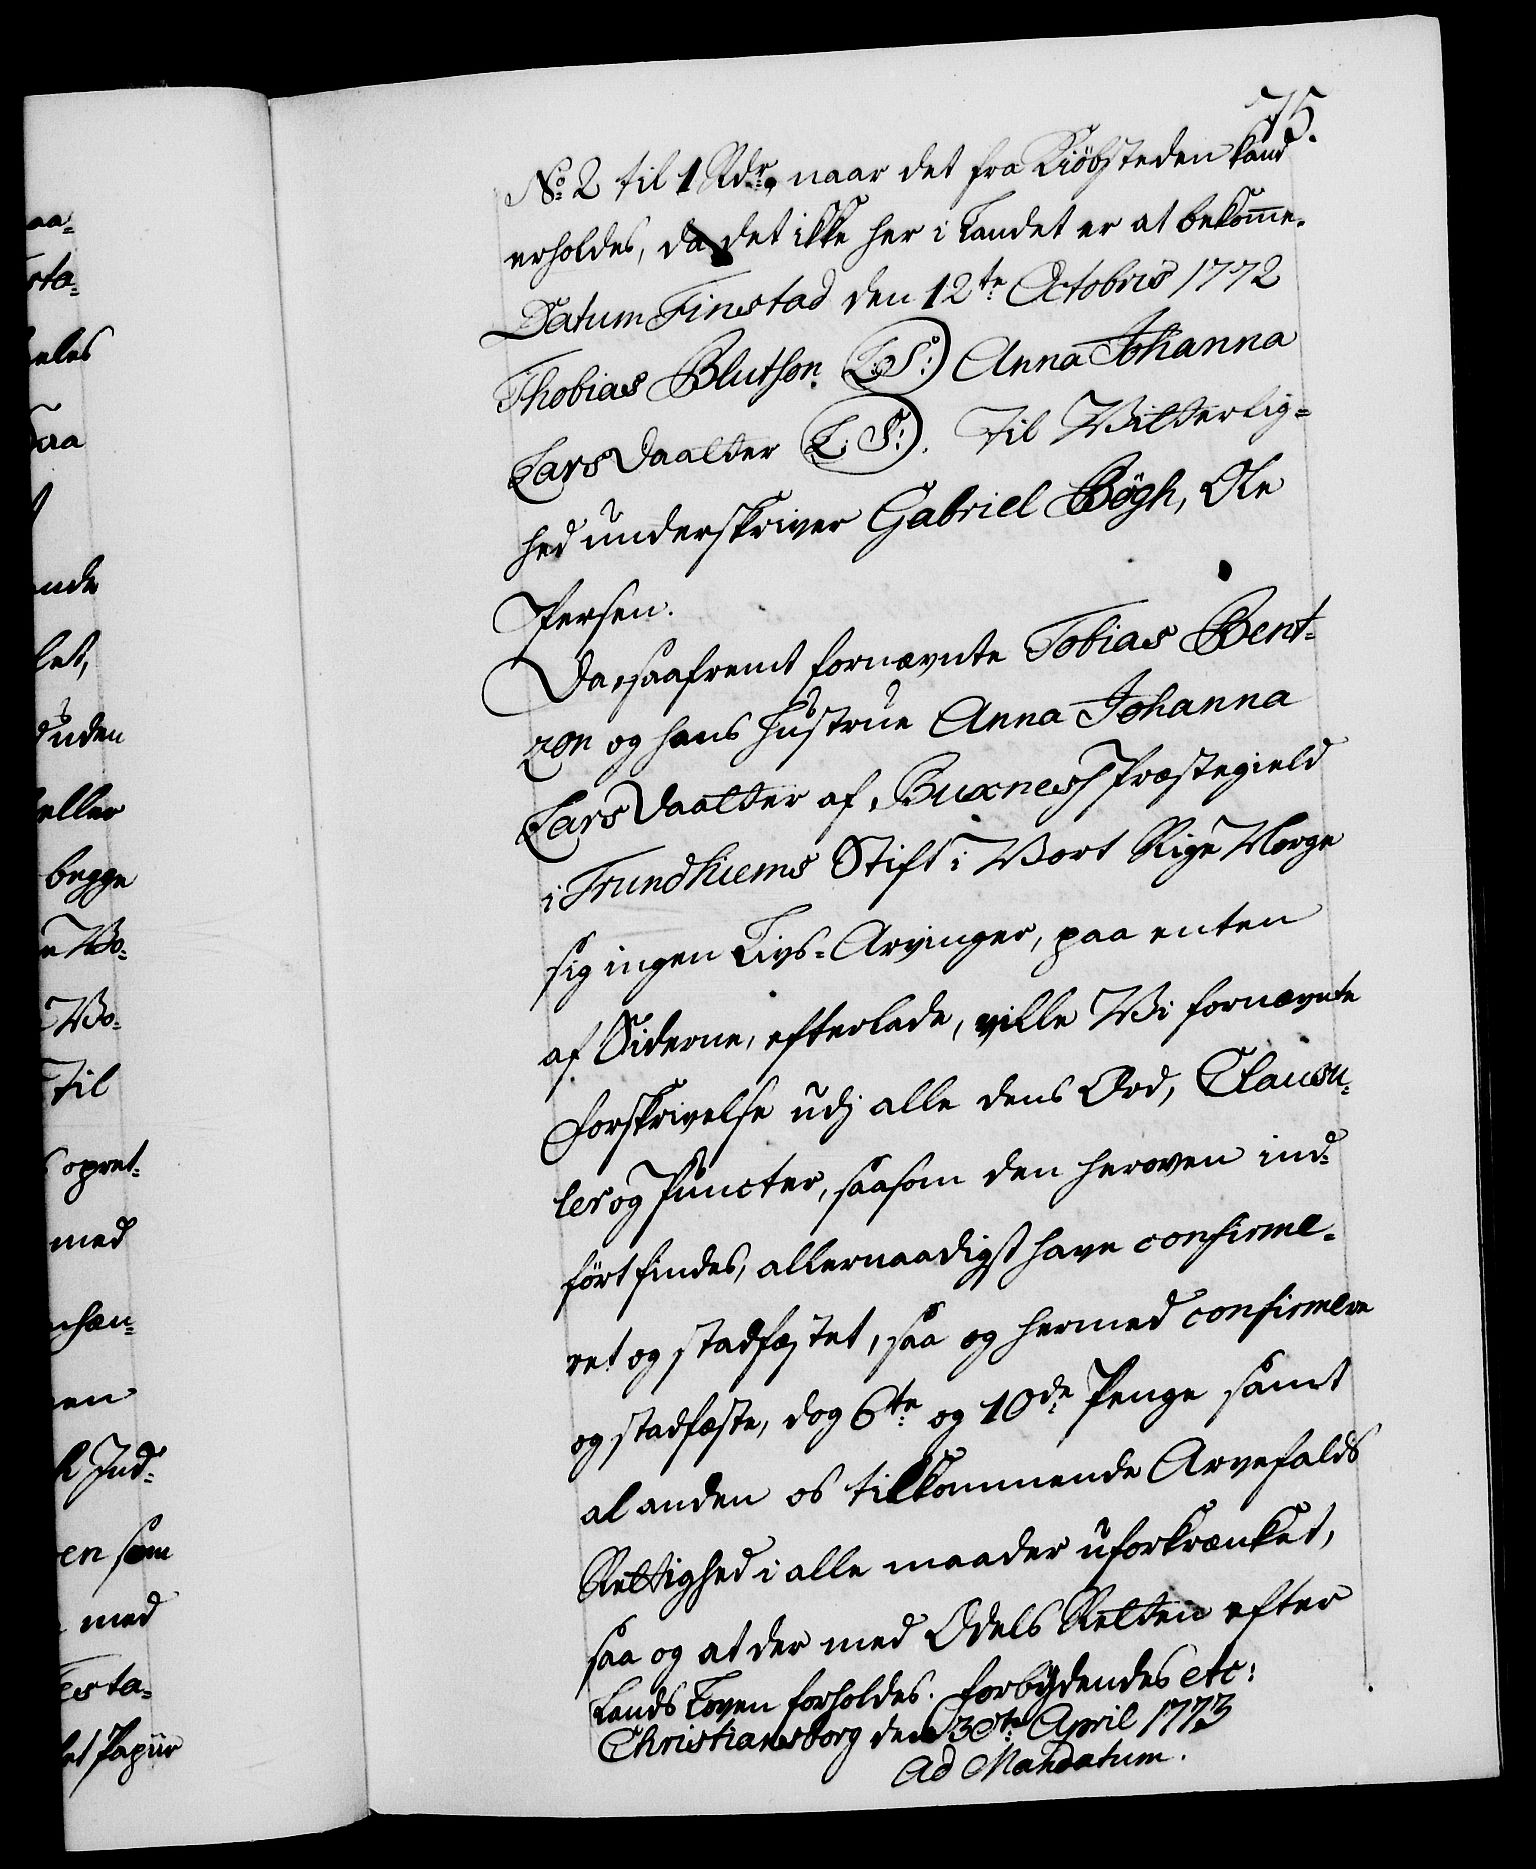 75.
No: 2 til 1 Rdr, naar det fra Kiöbsteden kand
erholdes, da det ikke her i Landet er at bekomme.
Datum Finstad den 12te Octobris 1772
Thobias Blutson. (L:S:) Anna Johanna
Lars Daatter (L:S:). Til Vitterlig=
hed underskriver Gabriel Bögh, Ole
Persen.
Da, saafremt fornævnte Tobias Bent=
zon og hans Hustrue Anna Johanna
Lars Daatter af Buxness Præstegield
i Trundhiems Stift i Vort Rige Norge
sig ingen Livs=Arvinger, paa enten
af Siderne, efterlade, ville Vi fornævnte
Forskrivelse udj alle dens Ord, Clausu=
ler og Puncter, saasom den heroven ind=
fört findes, allernaadigst have confirme=
ret og stadfæstet, saa og hermed confirmere
og stadfæste, dog 6te og 10de Penge samt
al anden os tilkommende Arvefalds
Rettighed i alle maader uforkrænket,
saa og at der med Odels Retten efter
Lands Loven forholdes. Forbydendes etc:
Christiansborg den 30te April 1773
Ad Mandatum.
aa=
sta=
eles
saa
nde
let,
uden
eller
begge
Vo=
Vo=
Til
opret=
med
en
Ind=
en som
med
esta=
et Papiir